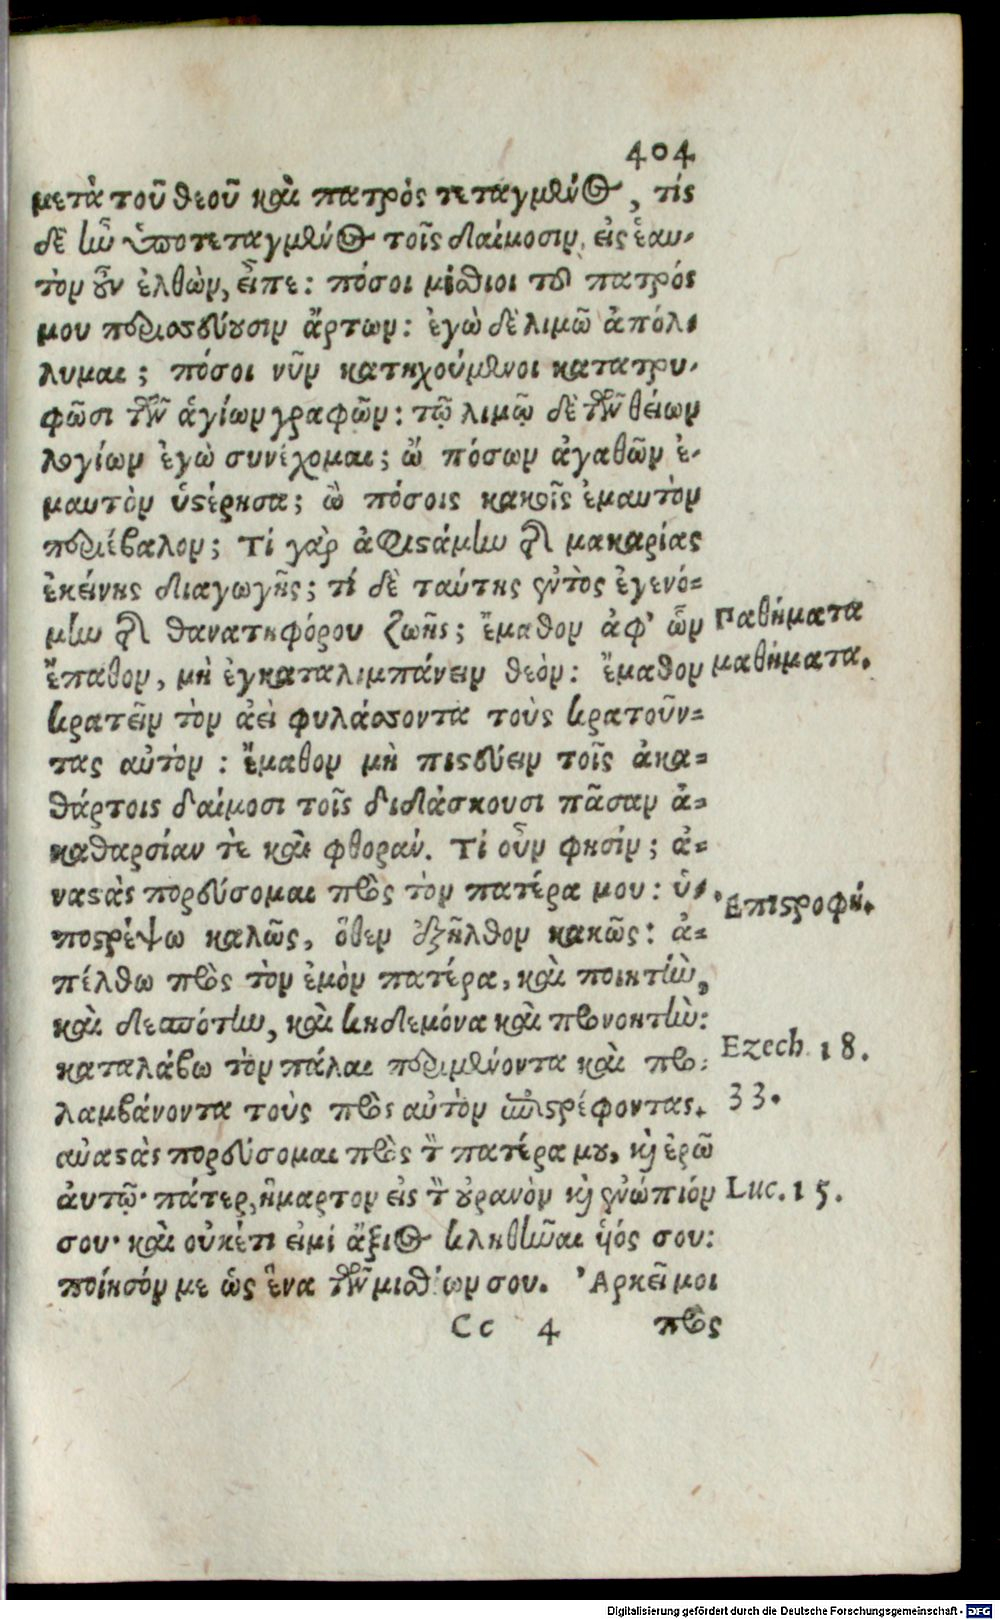 404
μετὰ τοῦ θεοῦ καὶ πατρὸς τεταγμένος, τίς
δὲ ἦν ὑποτεταγμένος τοῖς δαίμοσιν, εἰς ἑαυ-
τὸν οὖν ἐλθὼν, εἶπε: πόσοι μίσθιοι τοῦ πατρός
μου περισσεύουσιν ἄρτων: ἐγὼ δὲ λιμῶ ἀπόλ-
λυμαι; πόσοι νῦν κατηχούμενοι κατατρυ-
φῶσι τῶν ἁγίων γραφῶν: τῷ λιμῷ δὲ τῶν θείων
λογίων ἐγὼ συνέχομαι; ὢ πόσων ἀγαθῶν ἐ-
μαυτὸν ὑστέρησα; ὢ πόσοις κακοῖς ἐμαυτὸν
περιέβαλον; Τί γὰρ ἀφιστάμην τῆς μακαρίας
ἐκείνης διαγωγῆς; τί δὲ ταύτης ἐντὸς ἐγενό-
μην τῆς θανατηφόρου ζωῆς; ἔμαθον ἀφ' ὧν
ἔπαθον, μὴ ἐγκαταλιμπάνειν θεὸν: ἔμαθον
κρατεῖν τὸν ἀεὶ φυλάσσοντα τοὺς κρατοῦν-
τας αὐτὸν: ἔμαθον μὴ πιστεύειν τοῖς ἀκα-
θάρτοις δαίμοσι τοῖς διδάσκουσι πᾶσαν ἀ-
καθαρσίαν τὲ καὶ φθοράν. Τί οὖν φησίν; ἀ-
ναστὰς πορεύσομαι πρὸς τὸν πατέρα μου: ὑ-
ποστρέψω καλῶς, ὅθεν ἐξῆλθον κακῶς: ἀ-
πέλθω πρὸς τὸν ἐμὸν πατέρα, καὶ ποιητὴν,
καὶ δεσπότην, καὶ κηδεμόνα καὶ προνοητὴν:
καταλάβω τὸν πάλαι περιμένοντα καὶ προ-
λαμβάνοντα τοὺς πρὸς αὐτὸν ἐπιστρέφοντας.
ἀναστὰς πορεύσομαι πρὸς τὸν πατέρα μου, καὶ ἐρῶ
ἀυτῷ· πάτερ, ἥμαρτον εἰς τὸν οὐρανὸν καὶ ἐνώπιόν
σου· καὶ οὐκέτι εἰμί ἄξιος κληθῆναι υἱός σου:
ποίησόν με ὡς ἕνα τῶν μισθίων σου. Ἀρκεῖ μοι
Cc 4 πρὸς
Παθήματα
μαθήματα.
Ἐπιστροφή.
Ezech. 18.
33.
Luc. 15.
Digitalisierung gefördert durch die Deutsche Forschungsgemeinschaft - DFG